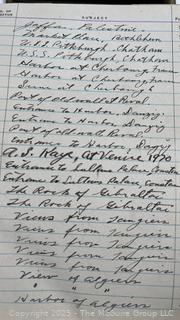 SUBJECT
Jaffa, Palestine.
Market Place, Bethlehem
U.S.S. Pittsburgh, Chatham
U.S.S. Pittsburgh Chatham
Harbor at Cherbourg, France
Harbor at Cherbourg, France
Scene at Cherbourg
Part of old wall at
Entrance to Harbor, Danzig
Entrance to Harbor, Danzig
Part of old wall
Entrance to Harbor, Danzig
A.J. Kaye, At Venice 1920
Entrance to Sultans Palace, Constan
Entrance to Sultans Palace, Constan
The Rock of Gibraltar
The Rock of Gibraltar
Views from Tangiers
Views from Tangiers
Views from Tangiers
Views from Tangiers
Views from Tangiers
View of Algiers
" " "
Harbor of Algiers
Copyright 2025 - The McGuire Group LLC